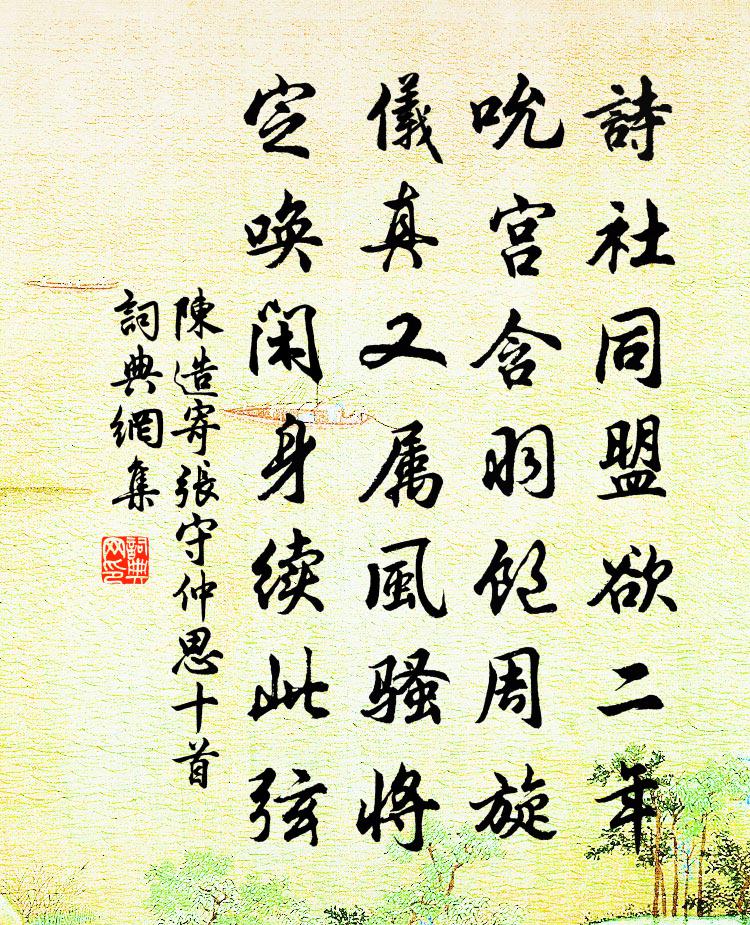 詩社同盟欲二年
吮宫含羽飽周旋
儀真又属風騷將
定唤闲身续此弦
陳造寄張守仲思十首
詞典網集
詞典网印